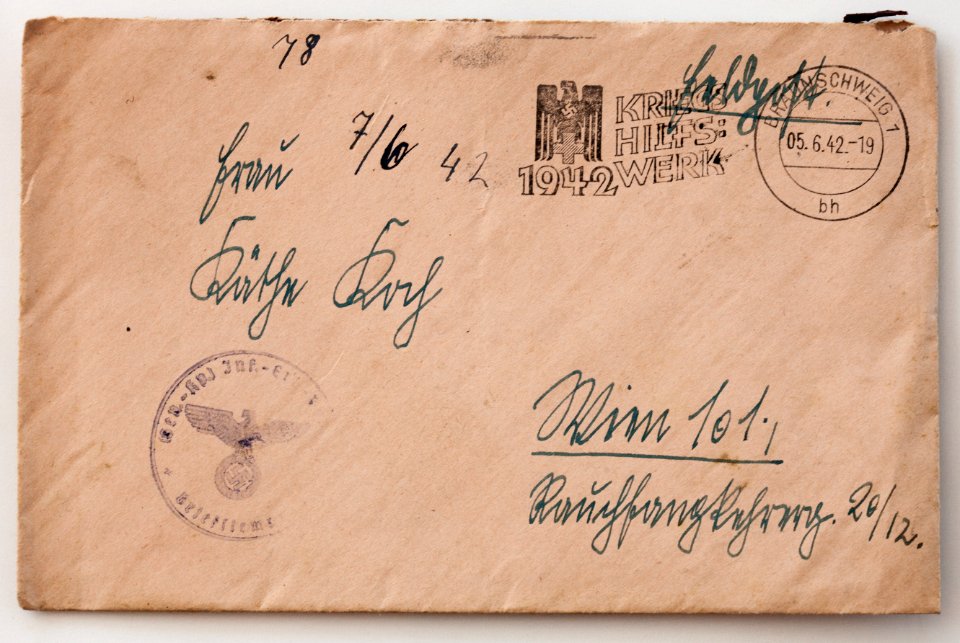 78
Feldpost.
KRIEGS
HILFS:
WERK
1942
BRAUNSCHWEIG 1
05.6.42.-19
bh
7/6 42
Frau
Käthe Koch
Briefstempel
Wien 101.,
Rauchfangkehrerg. 20/12.